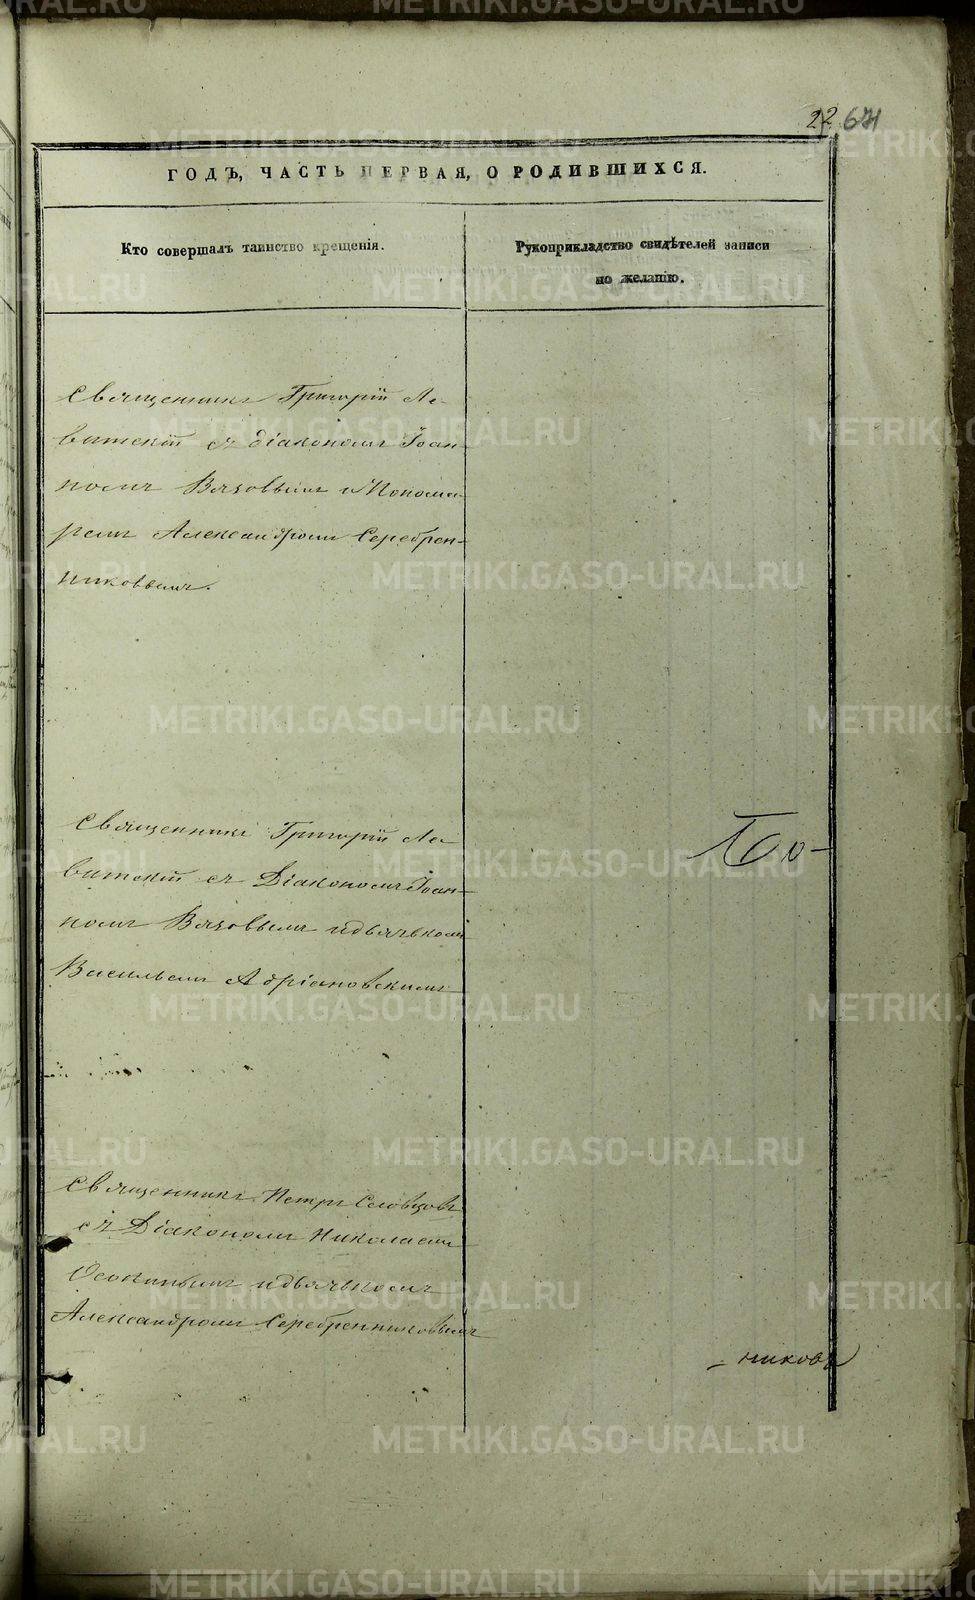 22 671
ГОДЪ, ЧАСТЬ ПЕРВАЯ, О РОДИВШИХСЯ.
Кто совершалъ таинство крещенія.
Рукоприкладство свидѣтелей записи
по желанію.
Священникъ Григорій Ле-
витскій съ діакономъ Іоан-
номъ Вязовымъ и Понома-
ремъ Александромъ Серебрен-
никовымъ.
Священникъ Григорій Ле-
витскій съ Діакономъ Іоан-
номъ Вязовымъ и дьячкомъ
Васильемъ Адріановскимъ
Священникъ Петръ Словцовъ
съ Діакономъ Николаемъ
Осокинымъ и дьячкомъ
Александромъ Серебренниковымъ
-никовъ
METRIKI.GASO-URAL.RU